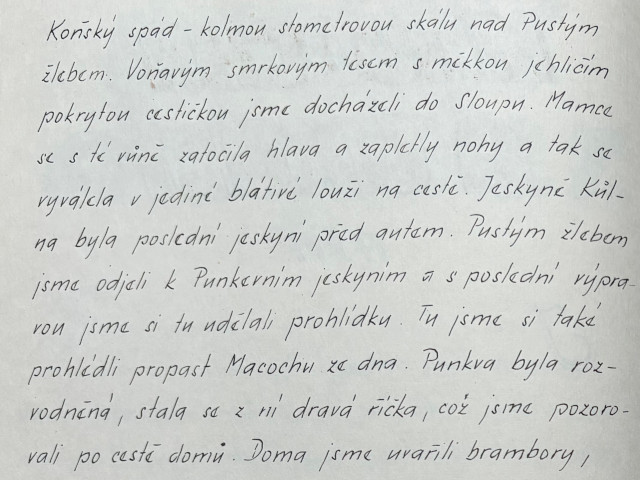 Koňský spád - kolmou stometrovou skálu nad Pustým
žlebem. Voňavým smrkovým lesem s měkkou jehličím
pokrytou cestičkou jsme docházeli do Sloupu. Mamce
se s té vůně zatočila hlava a zapletly nohy a tak se
vyválela v jediné blátivé louži na cestě. Jeskyně Kůl-
na byla poslední jeskyní před autem. Pustým žlebem
jsme odjeli k Punkevním jeskyním a s poslední výpra-
vou jsme si tu udělali prohlídku. Tu jsme si také
prohlédli propast Macochu ze dna. Punkva byla roz-
vodněná, stala se z ní dravá říčka, což jsme pozoro-
vali po cestě domů. Doma jsme uvařili brambory,